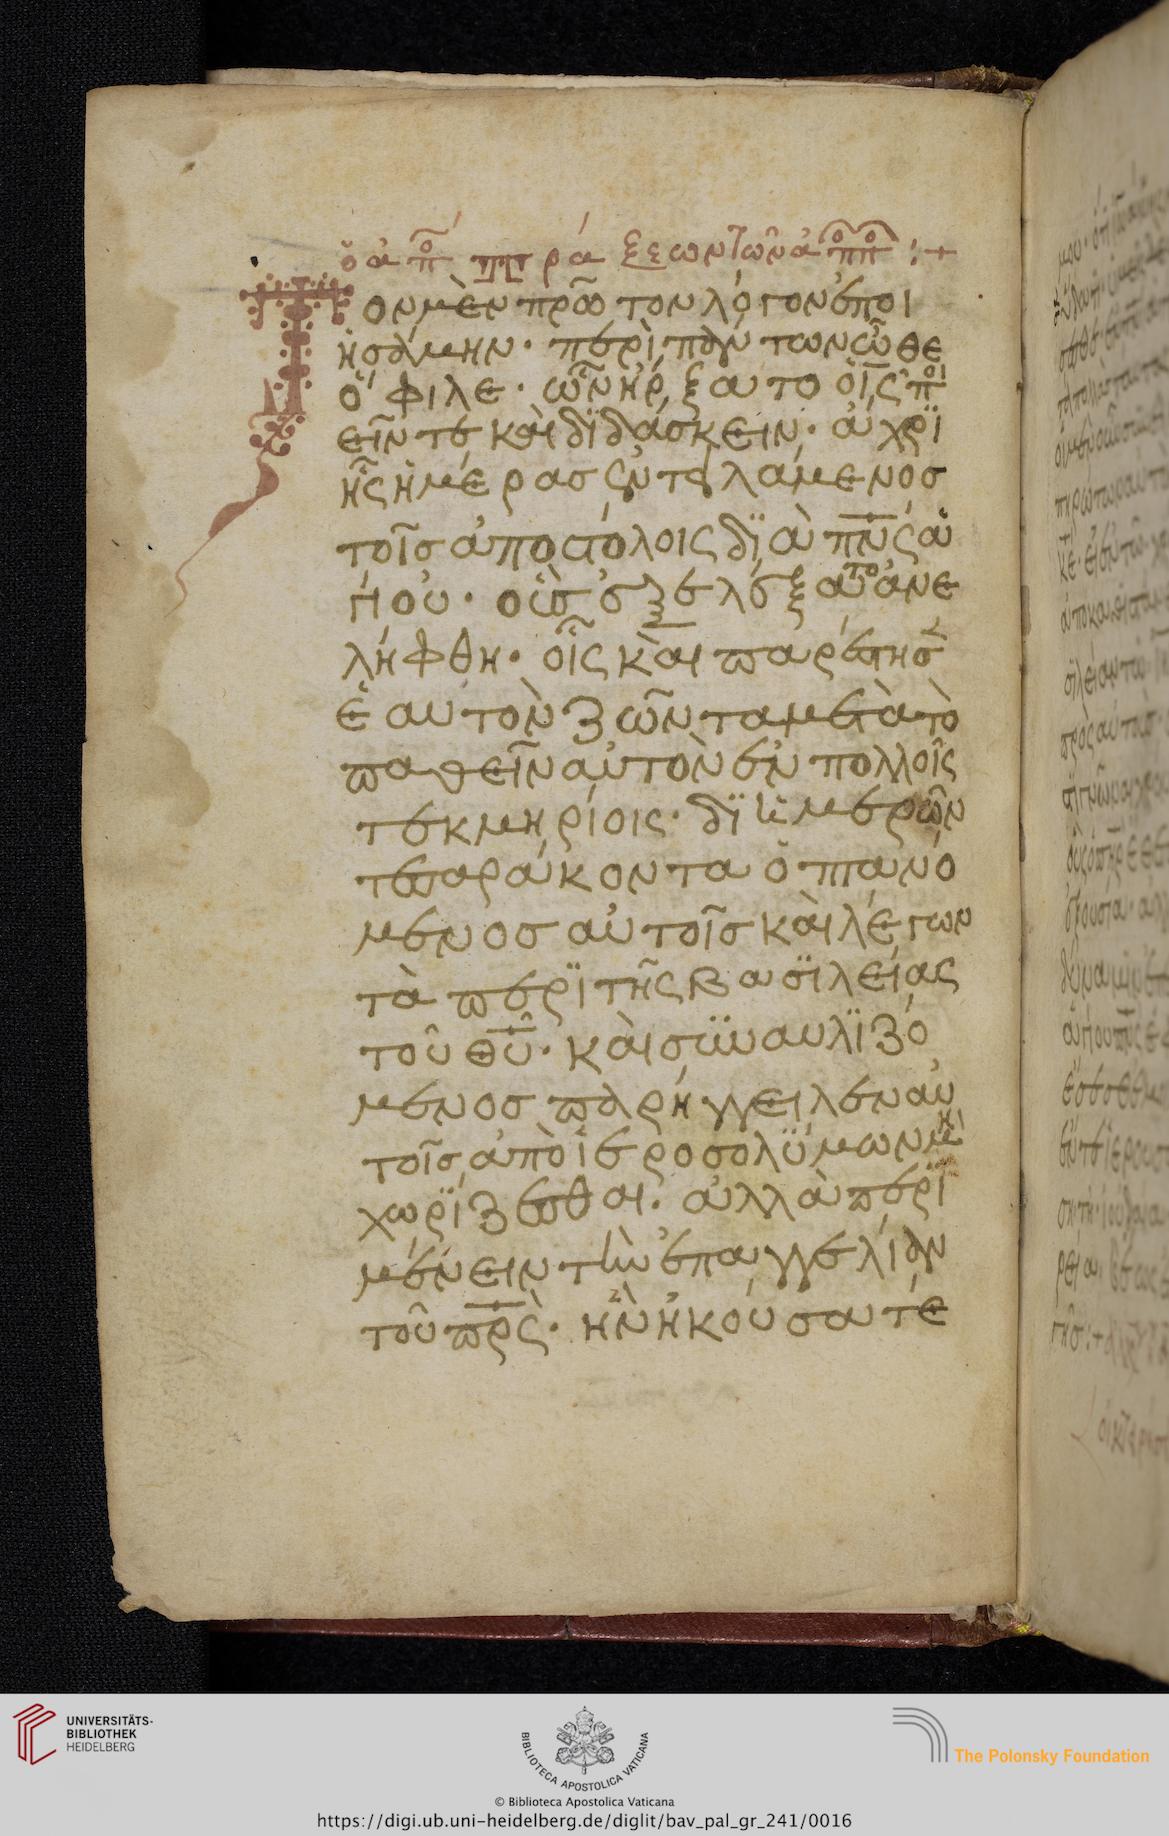 ὁ ἀπο πρα ξεων τῶν ἀπο :+
Τον μὲν πρῶ τον λόγον ἐποι
ησάμην· περὶ πάντων ὦ θε
ό φιλε· ὧν ἤρξατο ὁ ις ποι
εῖν τε καὶ διδάσκειν· ἄχρϊ
ἧς ἡμέρας ἐντειλάμενος
τοῖς ἀποστόλοις διὰ πνς ἁ
γίου· οὓς ἐξελέξατο ἀνε
λήφθη· οἷς καὶ παρέστησ
ἑαυτὸν ζῶντα μετὰ τὸ
παθεῖν αὐτὸν ἐν πολλοῖς
τεκμηρίοις· δϊ ἡμερῶν
τεσσαράκοντα ὀπτανό
μενος αὐτοῖς καὶ λέγων
τὰ περϊ τῆς βασϊλείας
τοῦ θυ· καὶ συναυλϊζό
μενος παρήγγειλεν αὐ
τοῖς ἀπὸ ἱεροσολΰμων μὴ
χωρϊζεσθαι. ἀλλὰ περϊ
μένειν τὴν ἐπαγγελίαν
τοῦ πρς· ἣν ἠκούσατέ
UNIVERSITÄTS-
BIBLIOTHEK
HEIDELBERG
BIBLIOTECA APOSTOLICA VATICANA
The Polonsky Foundation
© Biblioteca Apostolica Vaticana
https://digi.ub.uni-heidelberg.de/diglit/bav_pal_gr_241/0016